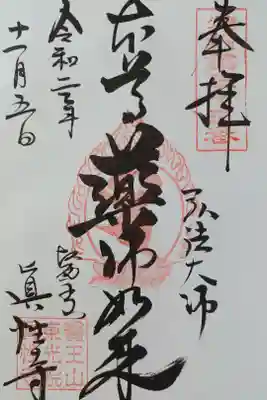 奉拝
弘法大師
本尊 藥師如来
眞性寺
令和二年
十一月五日
醫王山
東光院